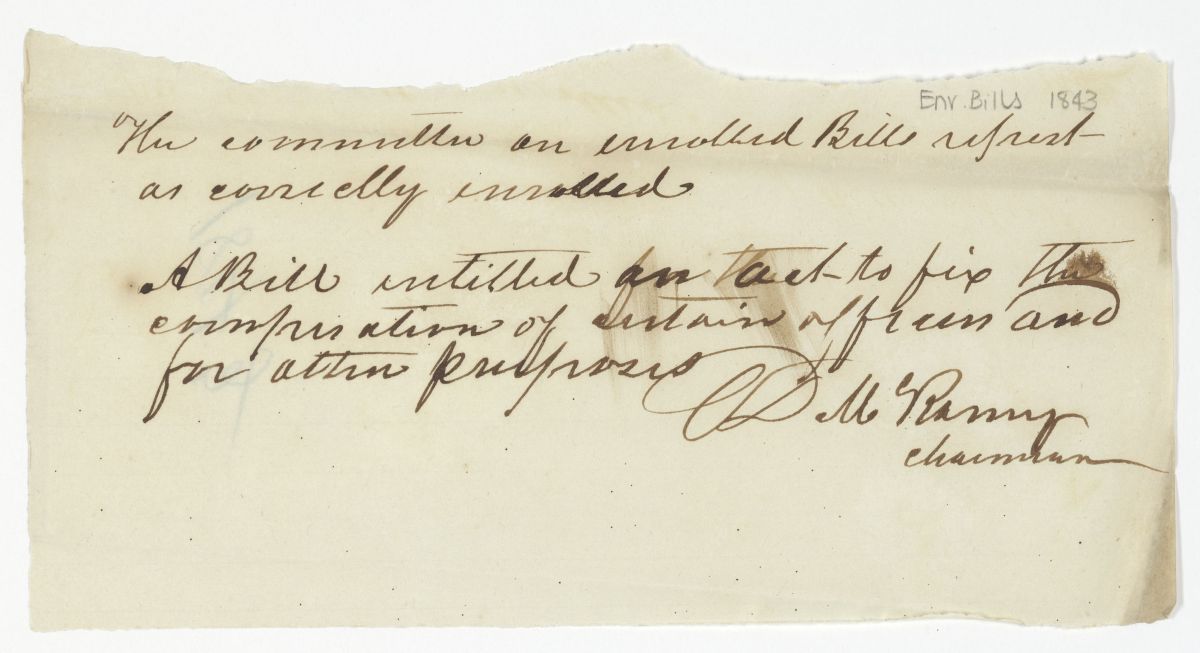 Env. Bills 1843
The committee on enrolled Bills report
as correctly enrolled
A Bill entitled an act to fix the
compensation of certain officers and
for other purposes
D McRaney
chairman